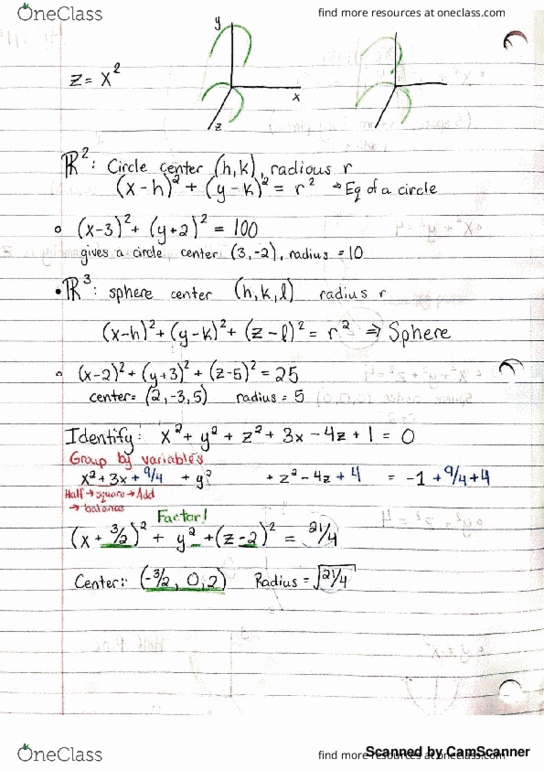 OneClass
find more resources at oneclass.com
z = x²
y
x
z
ℝ²: Circle center (h,k), radious r
(x-h)² + (y-k)² = r² → Eq of a circle
(x-3)² + (y+2)² = 100
gives a circle center (3,-2), radius = 10
• ℝ³: sphere center (h,k,l) radius r
(x-h)² + (y-k)² + (z-l)² = r² ⇒ Sphere
(x-2)² + (y+3)² + (z-5)² = 25
center = (2,-3,5) radius = 5
Identify: x² + y² + z² + 3x - 4z + 1 = 0
Group by variables
x² + 3x + 9/4 + y² + z² - 4z + 4 = -1 + 9/4 + 4
Half → square → Add
→ balance
Factor!
(x + 3/2)² + y² + (z-2)² = 21/4
Center: (-3/2, 0, 2) Radius = √21/4
OneClass
find more resources at oneclass.com
Scanned by CamScanner